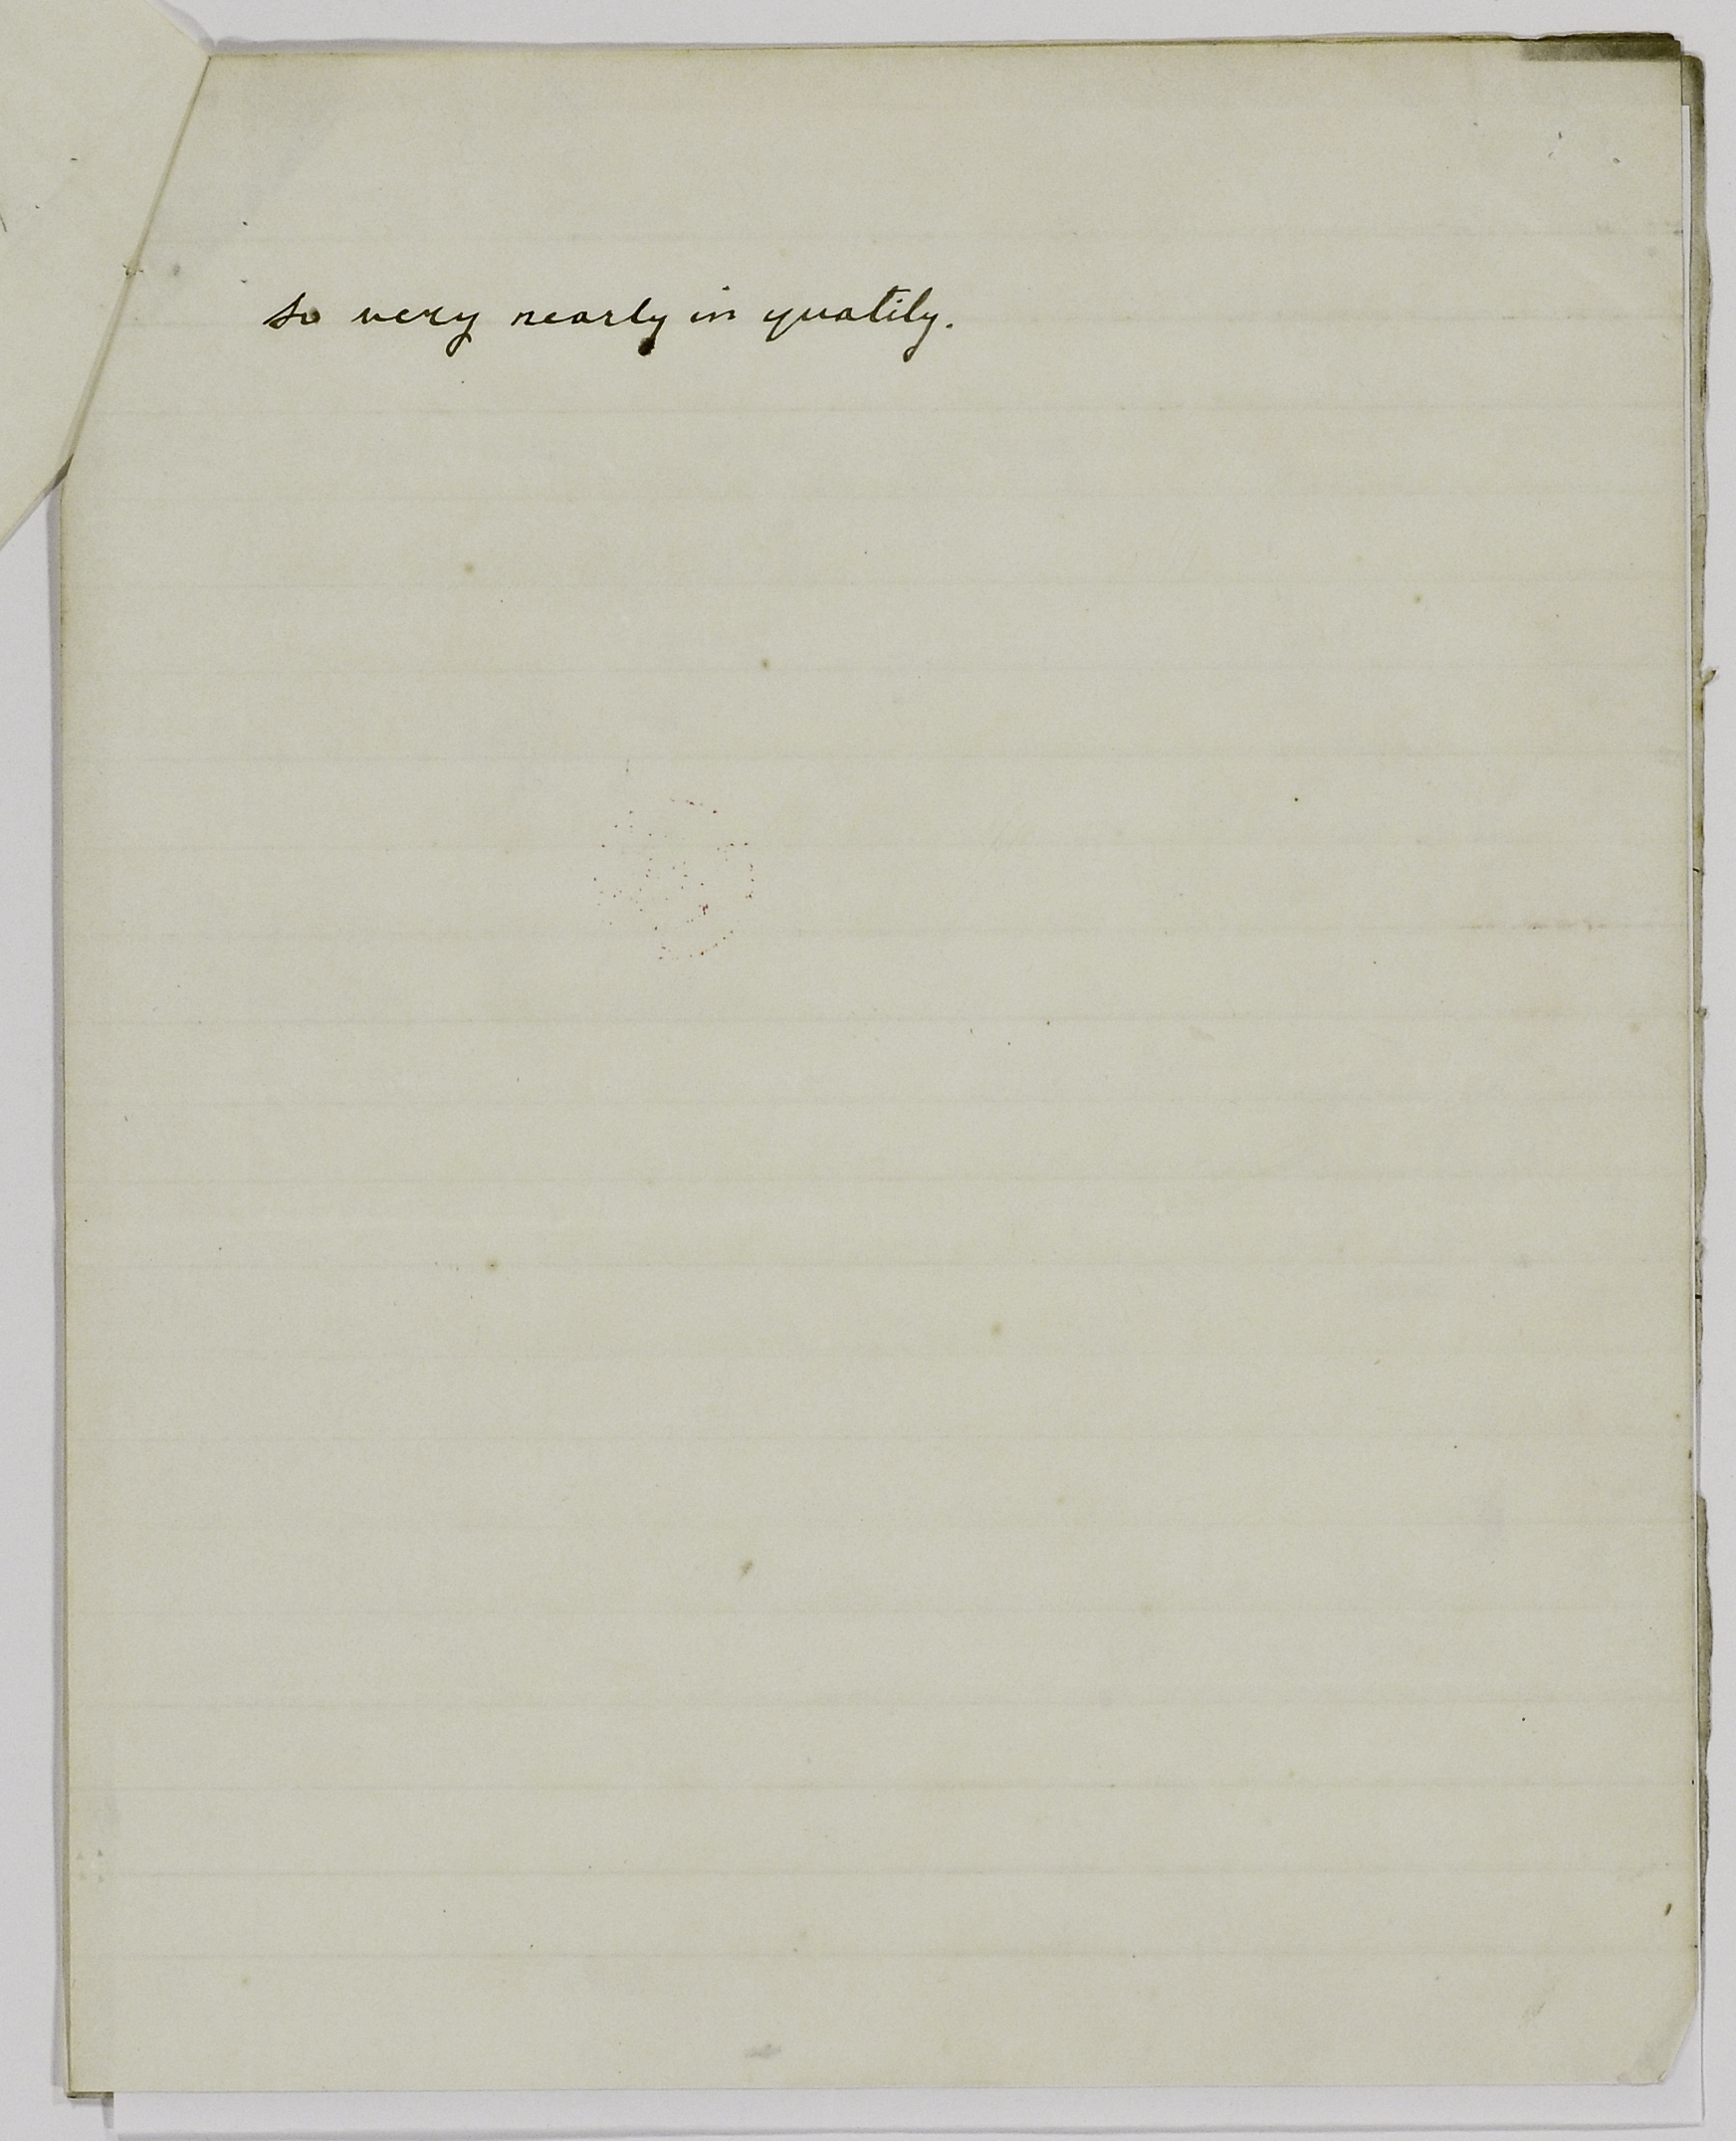 so very nearly in quality.